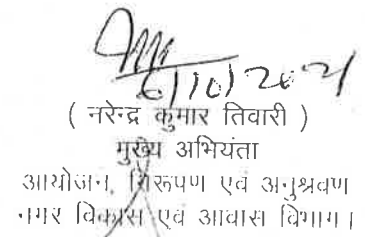 6/10/2021
( नरेन्द्र कुमार तिवारी )
मुख्य अभियंता
आयोजन, निरूपण एवं अनुश्रवण
नगर विकास एवं आवास विभाग।